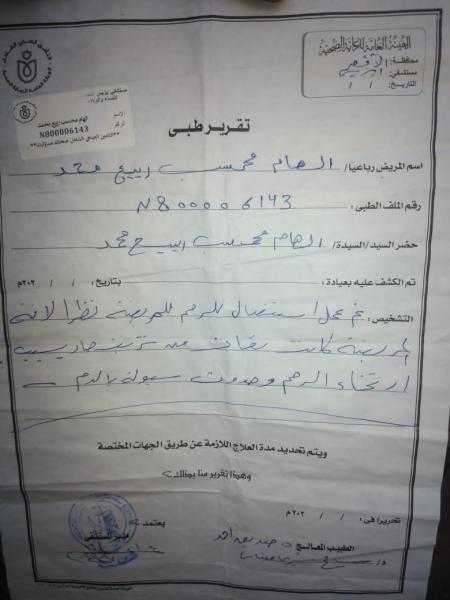 الهيئة العامة للرعاية الصحية
محافظة:
مستشفى:
التاريخ: / /
N800006143
تقرير طبى
اسم المريض رباعيا/ الهام محمد ربيع محمد
رقم الملف الطبى: N800006143
حضر السيد/السيدة/ الهام ربيع محمد
تم الكشف عليه بعيادة: بتاريخ: / / ٢٠٢م
التشخيص: تم عمل استئصال للرحم للمريضة نظرا لانه
المريضة كانت تعانى من نزيف حاد بسبب
ارتخاء الرحم وحدوث سيولة بالدم
ويتم تحديد مدة العلاج اللازمة عن طريق الجهات المختصة
وهذا تقرير منا بذلك
تحريرا فى: / / ٢٠٢م
يعتمد
الطبيب المعالج
مدير المستشفى